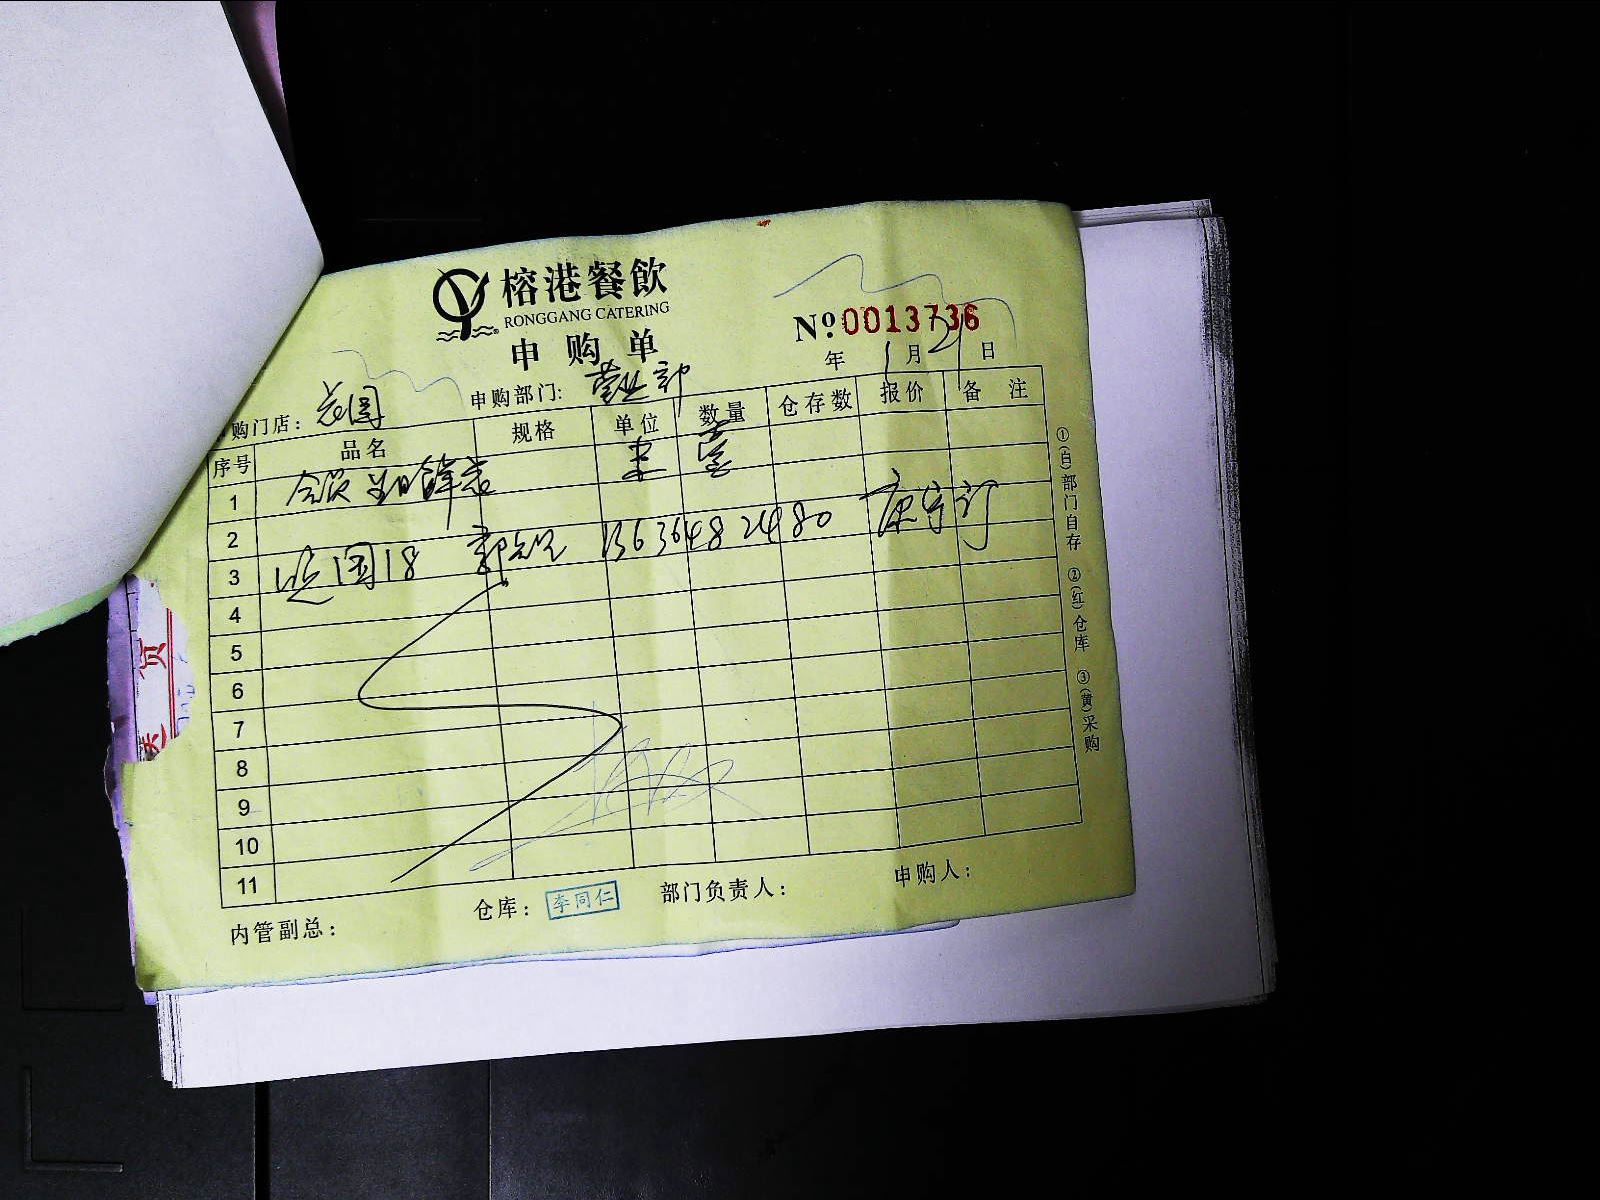 榕港餐飲
RONGGANG CATERING
申购单
№ 0013736
年 1月21日
购门店： 申购部门: 营业部
序号 品名 规格 单位 数量 仓存数 报价 备注
1
2
3 国18 13636482480
4
5
6
7
8
9
10
11
内管副总： 仓库： 李同仁 部门负责人： 申购人：
①(白)部门自存 ②(红)仓库 ③(黄)采购